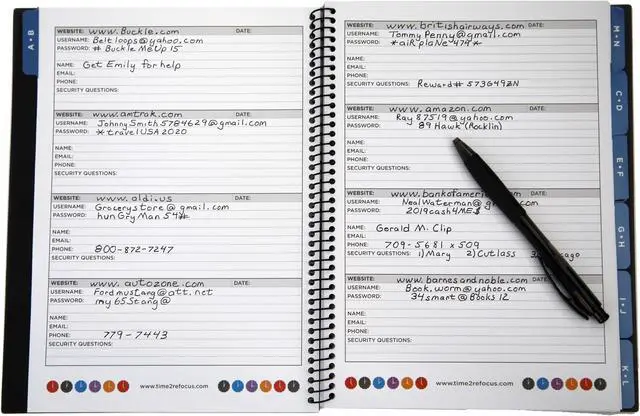 A·B
WEBSITE: www.Buckle.com DATE:
USERNAME: Beltloops@yahoo.com
PASSWORD: # BuckleMeUp15
NAME: Get Emily for help
EMAIL:
PHONE:
SECURITY QUESTIONS:
WEBSITE: www.amtrak.com DATE:
USERNAME: JohnnySmith5784629@gmail.com
PASSWORD: *travelUSA2020
NAME:
EMAIL:
PHONE:
SECURITY QUESTIONS:
WEBSITE: www.aldi.us DATE:
USERNAME: Grocerystore@gmail.com
PASSWORD: hunGryMan54#
NAME:
EMAIL:
PHONE: 800-872-7247
SECURITY QUESTIONS:
WEBSITE: www.autozone.com DATE:
USERNAME: Fordmustang@att.net
PASSWORD: my65Stang@
NAME:
EMAIL:
PHONE: 779-7443
SECURITY QUESTIONS:
www.time2refocus.com
WEBSITE: www.britishairways.com DATE:
USERNAME: TommyPenny@gmail.com
PASSWORD: *aiRplaNe474*
NAME:
EMAIL:
PHONE:
SECURITY QUESTIONS: Reward# 573649ZN
WEBSITE: www.amazon.com DATE:
USERNAME: Ray87519@yahoo.com
PASSWORD: 89 Hawk (Rocklin)
NAME:
EMAIL:
PHONE:
SECURITY QUESTIONS:
WEBSITE: www.bankofameri .com DATE:
USERNAME: NealWaterman@g .com
PASSWORD: 2019cash4ME$
NAME: Gerald M. Clip
EMAIL:
PHONE: 709-5681 x509
SECURITY QUESTIONS: 1)Mary 2)Cutlass 3) cago
WEBSITE: www.barnesandnoble.com DATE:
USERNAME: Book_worm@yahoo.com
PASSWORD: 34smart@Books12
NAME:
EMAIL:
PHONE:
SECURITY QUESTIONS:
www.time2refocus.com
M·N
C·D
E·F
G·H
I·J
K·L